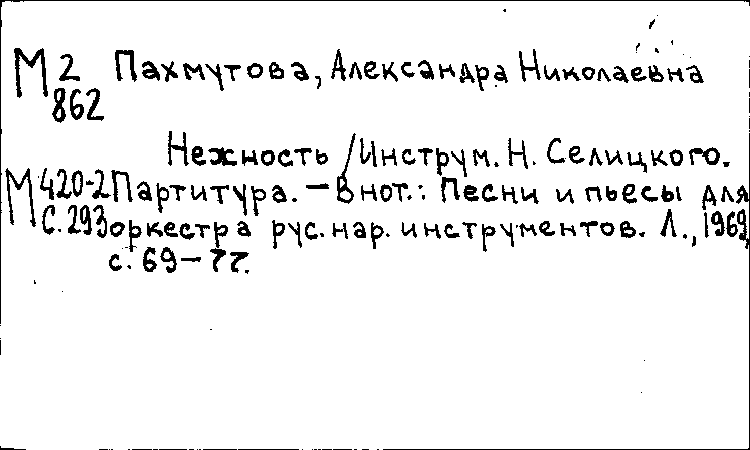 М 2 Пахмутова, Александра Николаевна
862
Нежность /Инструм. Н. Селицкого.
М 420-2 Партитура. – В нот.: Песни и пьесы для
С. 293 оркестра рус. нар. инструментов. Л., 1969,
с. 69 – 77.